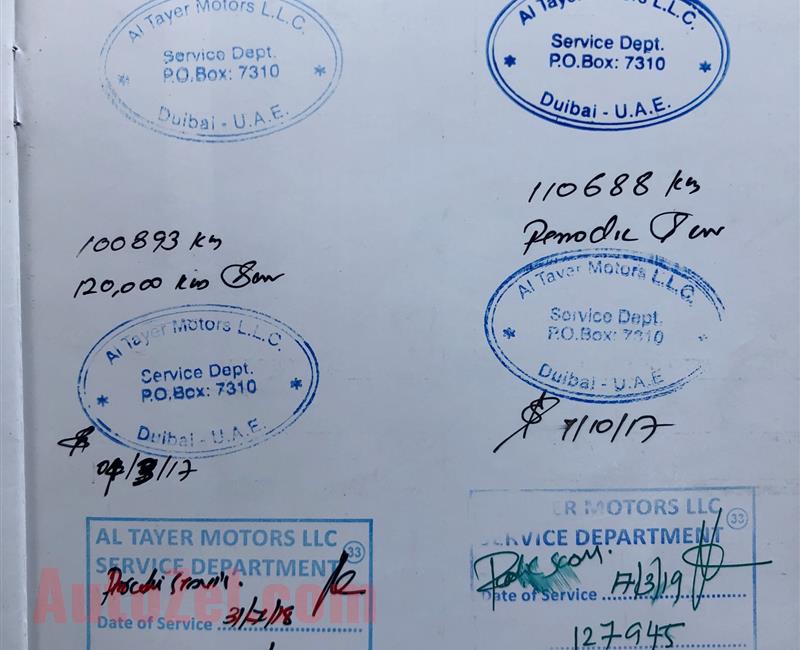 Al Tayer Motors L.L.C.
Service Dept.
P.O.Box: 7310
Duibai - U.A.E.
Al Tayer Motors L.L.C.
Service Dept.
P.O.Box: 7310
Duibai - U.A.E.
100893 km
120,000 kms Serv
Al Tayer Motors L.L.C.
Service Dept.
P.O.Box: 7310
Duibai - U.A.E.
/17
110688 km
Periodic Serv
Al Tayer Motors L.L.C.
Service Dept.
P.O.Box: 7310
Duibai - U.A.E
7/10/17
AL TAYER MOTORS LLC
33
SERVICE DEPARTMENT
Date of Service
ER MOTORS LLC
33
SERVICE DEPARTMENT
Date of Service 17/3/19
127945
AutoZel.com